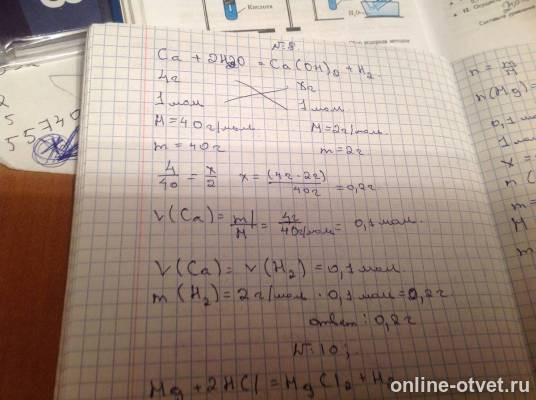 Кислота
N:9
Ca + 2H2O = Ca(OH)2 + H2
4г xг
1 мол 1 мол
M = 40 г/мол M = 2 г/мол
m = 40 г m = 2 г
4/40 = x/2 x = (4г · 2г)/40г = 0,2г
V(Ca) = m/M = 4г/40г/мол = 0,1 мол.
V(Ca) = V(H2) = 0,1 мол.
m(H2) = 2 г/мол · 0,1 мол = 0,2г.
ответ: 0,2г
N:10;
Mg + 2HCl = MgCl2 + H2
55740
n = m/M
n(Mg) =
0,1 м
1 мол
x =
online-otvet.ru